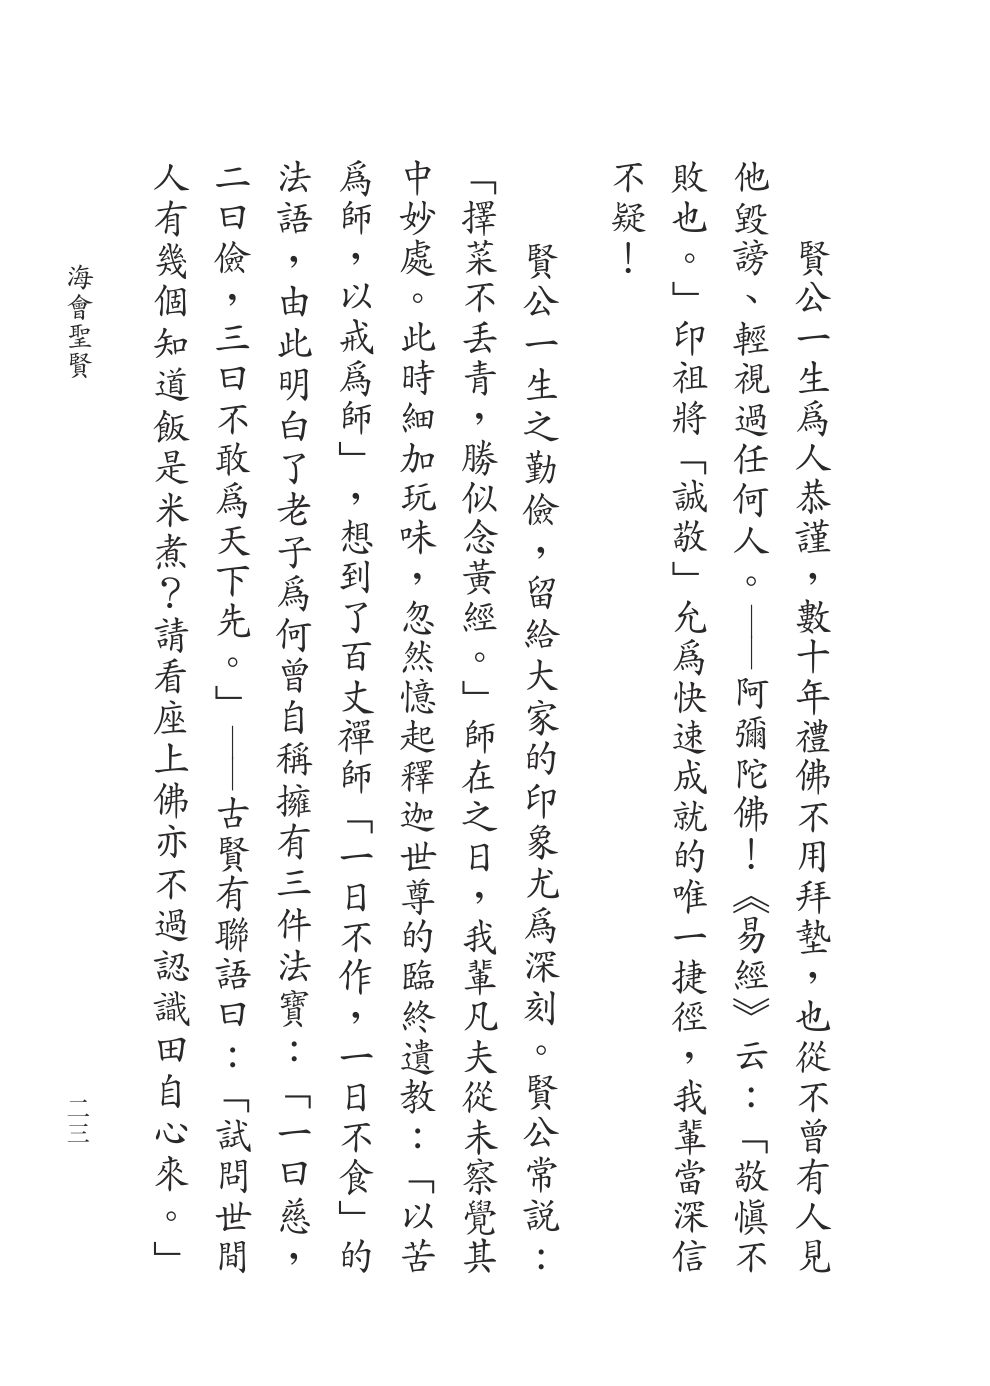 賢公一生爲人恭謹，數十年禮佛不用拜墊，也從不曾有人見
他毀謗、輕視過任何人。——阿彌陀佛！《易經》云：「敬愼不
敗也。」印祖將「誠敬」允爲快速成就的唯一捷徑，我輩當深信
不疑！
賢公一生之勤儉，留給大家的印象尤爲深刻。賢公常說：
「擇菜不丟青，勝似念黃經。」師在之日，我輩凡夫從未察覺其
中妙處。此時細加玩味，忽然憶起釋迦世尊的臨終遺教：「以苦
爲師，以戒爲師」，想到了百丈禪師「一日不作，一日不食」的
法語，由此明白了老子爲何曾自稱擁有三件法寶：「一曰慈，
二曰儉，三曰不敢爲天下先。」——古賢有聯語曰：「試問世間
人有幾個知道飯是米煮？請看座上佛亦不過認識田自心來。」
海會聖賢
二三